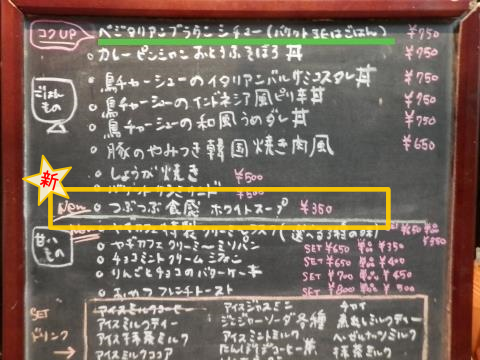 ココUP ベジタリアンブラウンシチュー(バケット又はごはん) ¥750
カレーピンシャンおとうふそぼろ丼 ¥750
ごはんもの
鳥チャーシューのイタリアンバルサミコスダレ丼 ¥750
鳥チャーシューのインドネシア風ピリ辛丼 ¥750
鳥チャーシューの和風うめダレ丼 ¥750
豚のやみつき韓国焼き肉風 ¥650
しょうが焼き ¥500
¥500
新
New つぶつぶ食感 ホワイトスープ ¥350
甘いもの
(選べる3種の味) ¥350
ヤギカフェクリーミーミソパン SET ¥650 ¥350
チョコミントクリーム SET ¥650 ¥400
りんごとチョコのバターケーキ SET ¥700 ¥450
フレンチトースト SET ¥800 ¥500
SETドリンク →
アイスミルクコーヒー アイスジャスミン チャイ
アイスミルクティー ジンジャーソーダ各種 煮出しミルクティー
アイス抹茶ミルク アイスミントミルク ヘーゼルナッツミルク
アイスミルクココア たんぽぽコーヒー 抹茶ミルク